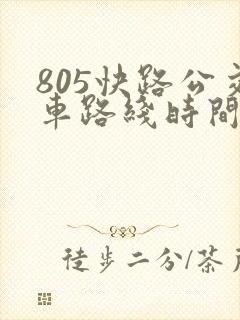 805快路公交
車路綫時間
徒步二分/茶戶